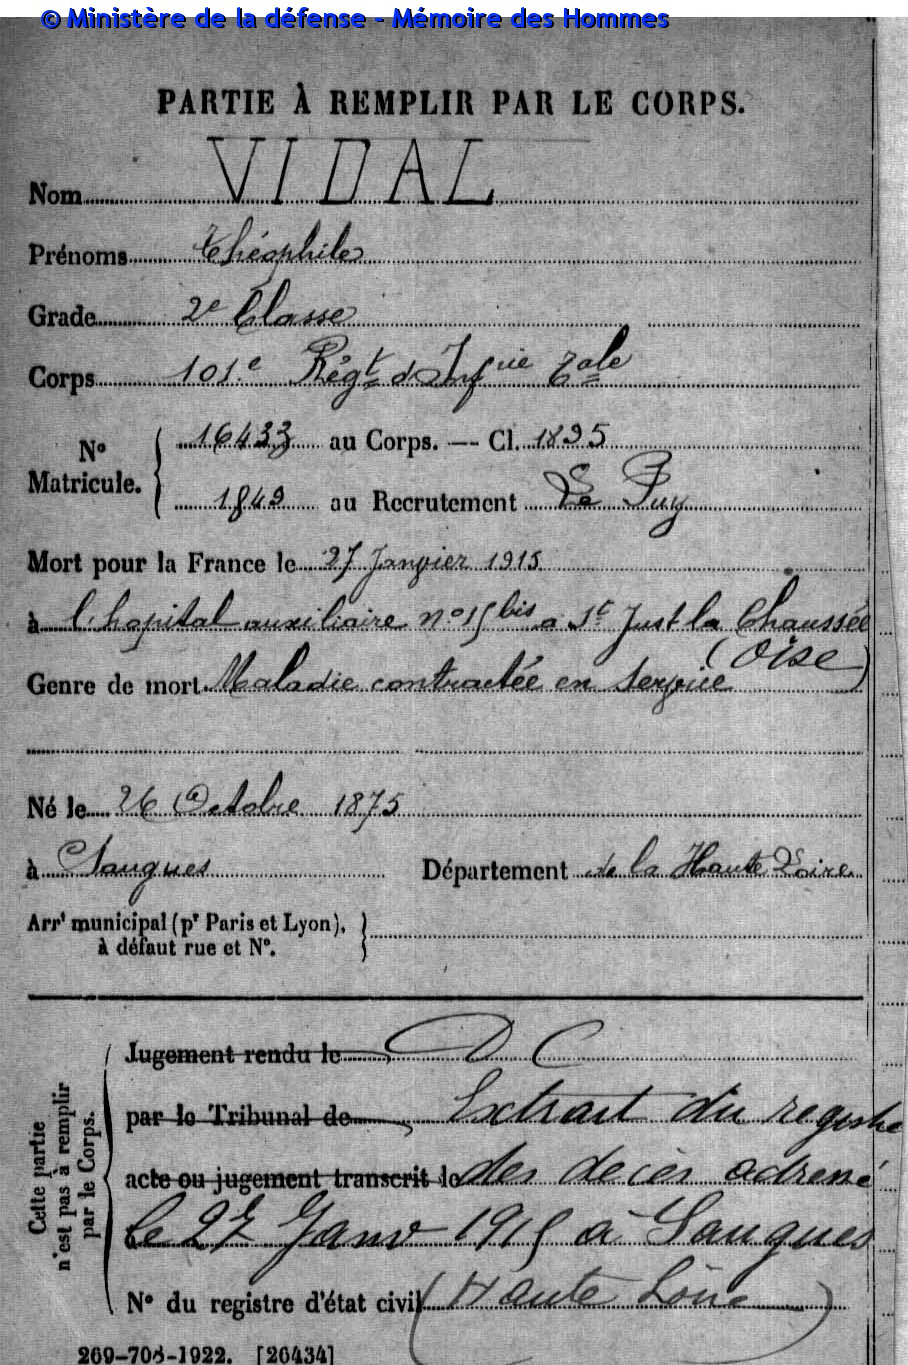 © Ministère de la défense - Mémoire des Hommes
PARTIE À REMPLIR PAR LE CORPS.
Nom VIDAL
Prénoms Théophile
Grade 2e Classe
Corps 101.e Régt d'Infrie Tale
N° Matricule. 16433 au Corps. — Cl. 1895
1849 au Recrutement Le Puy
Mort pour la France le 27 Janvier 1915
à l'hopital auxiliaire n° 15 bis a St Just la Chaussée
(Oise)
Genre de mort Maladie contractée en service
Né le 26 Octobre 1875
à Saugues Département de la Haute Loire
Arrt municipal (pr Paris et Lyon),
à défaut rue et N°.
Cette partie
n'est pas à remplir
par le Corps.
Jugement rendu le D C
par le Tribunal de Extrait du registre
acte ou jugement transcrit le des décès adressé
le 27 Janv 1915 à Saugues
N° du registre d'état civil (Haute Loire)
269-708-1922. [26434]